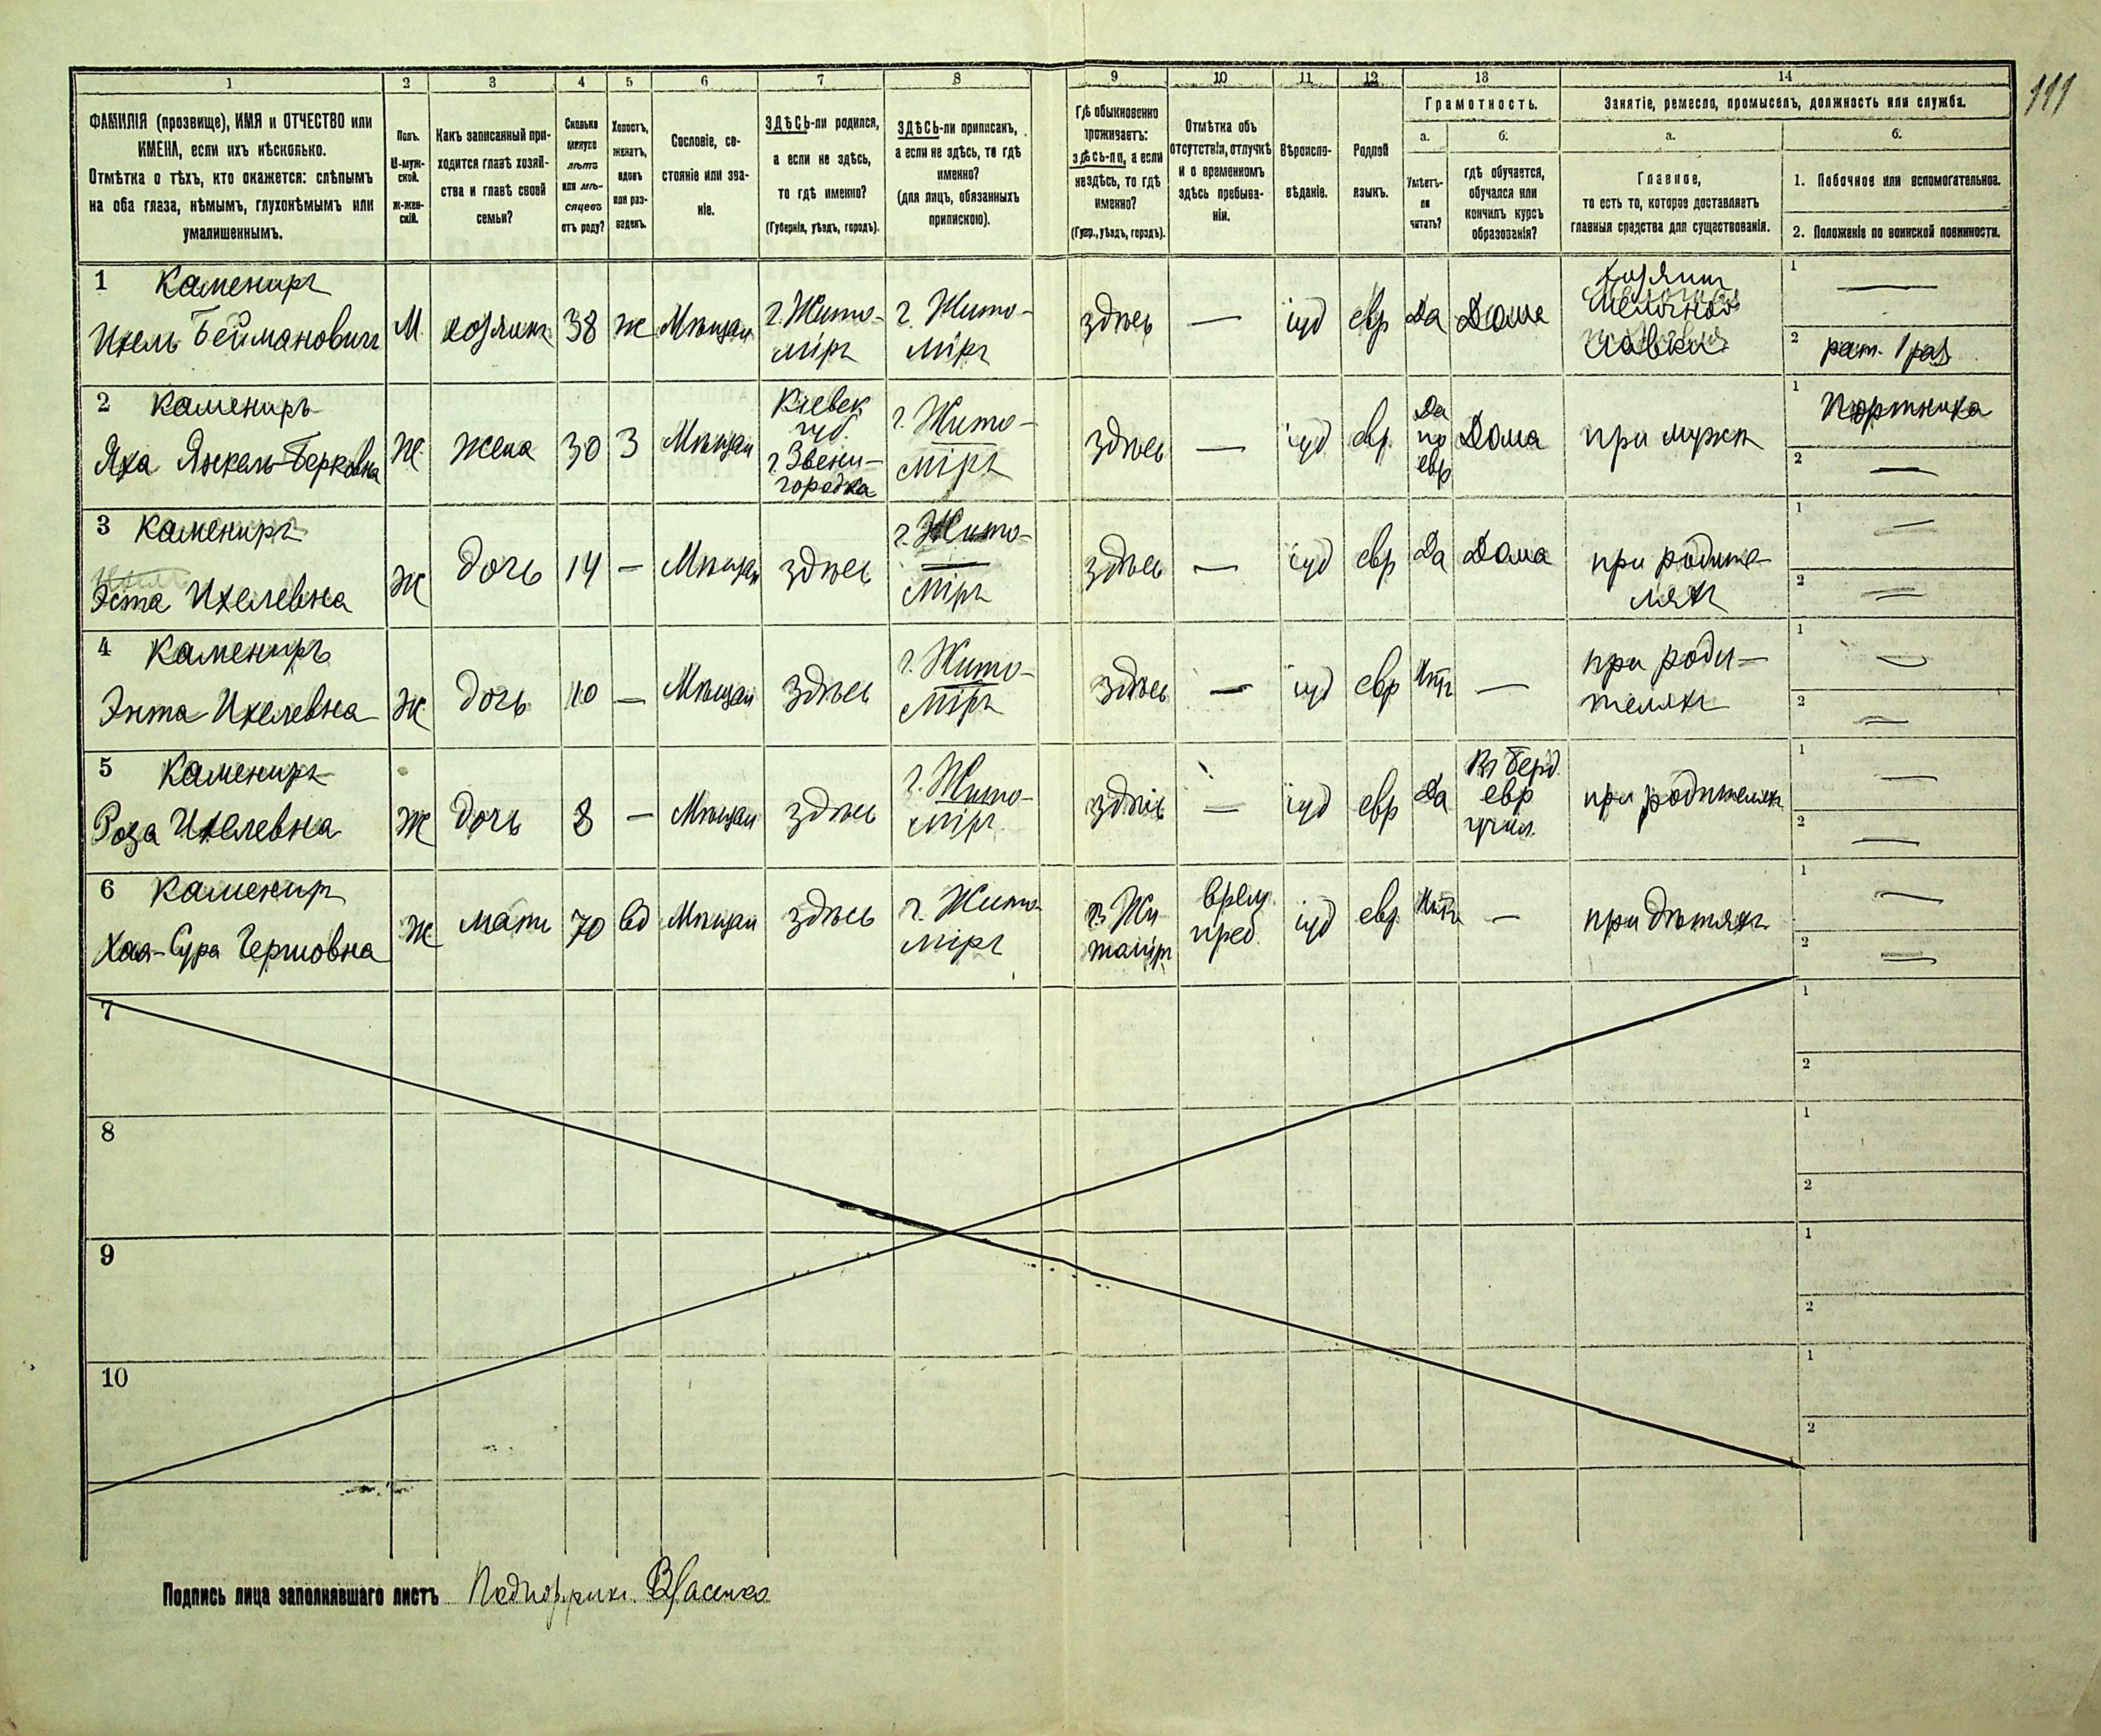 111
1 2 3 4 5 6 7 8 9 10 11 12 13 14
ФАМИЛІЯ (прозвище), ИМЯ и ОТЧЕСТВО или
ИМЕНА, если ихъ нѣсколько.
Отмѣтка о тѣхъ, кто окажется: слѣпымъ
на оба глаза, нѣмымъ, глухонѣмымъ или
умалишеннымъ.
Полъ.
М-муж-
ской.
Ж-жен-
скій.
Какъ записанный при-
ходится главѣ хозяй-
ства и главѣ своей
семьи?
Сколько
минуло
лѣтъ
или мѣ-
сяцевъ
отъ роду?
Холостъ,
женатъ,
вдовъ
или раз-
веденъ.
Сословіе, со-
стояніе или зва-
ніе.
ЗДѢСЬ-ли родился,
а если не здѣсь,
то гдѣ именно?
(Губернія, уѣздъ, городъ).
ЗДѢСЬ-ли приписанъ,
а если не здѣсь, то гдѣ
именно?
(для лицъ, обязанныхъ
припискою).
Гдѣ обыкновенно
проживаетъ:
здѣсь-ли, а если
нездѣсь, то гдѣ
именно?
(Губер., уѣздъ, городъ).
Отмѣтка объ
отсутствіи, отлучкѣ
и о временномъ
здѣсь пребыва-
ніи.
Вѣроиспо-
вѣданіе.
Родной
языкъ.
Грамотность.
а.
Умѣетъ-
ли
читать?
б.
гдѣ обучается,
обучался или
кончилъ курсъ
образованія?
Занятіе, ремесло, промыселъ, должность или служба.
а.
Главное,
то есть то, которое доставляетъ
главныя средства для существованія.
б.
1. Побочное или вспомогательное.
2. Положеніе по воинской повинности.
1 Камениръ
Ихель Беймановичъ
М.
хозяинъ
38
ж
Мѣщан
г. Жито-
міръ
г. Жито-
міръ
здѣсь
—
іуд
евр
Да
Дома
хозяинъ
мелочной
лавки
1 —
2 рат. 1 раз
2 Камениръ
Яха Янкель-Берковна
Ж
жена
30
З
Мѣщан
Кіевск
губ.
г. Звени-
городка
г. Жито-
міръ
здѣсь
—
іуд
евр.
Да
по
евр
Дома
при мужѣ
1 Портниха
2 —
3 Камениръ
Эста Ихелевна
Ж
дочь
14
—
Мѣщан
здѣсь
г. Жито-
міръ
здѣсь
—
іуд
евр
Да
Дома
при родите-
ляхъ
1 —
2 —
4 Камениръ
Энта Ихелевна
Ж
дочь
10
—
Мѣщан
здѣсь
г. Жито-
міръ
здѣсь
—
іуд
евр
Нѣтъ
—
при роди-
теляхъ
1 —
2 —
5 Камениръ
Роза Ихелевна
Ж
дочь
8
—
Мѣщан
здѣсь
г. Жито-
міръ
здѣсь
—
іуд
евр
Да
Въ Берд.
евр
учил.
при родителяхъ
1 —
2 —
6 Каменир
Хая-Сура Гершовна
Ж
мать
70
вд
Мѣщан
здѣсь
г. Жито-
міръ
в. Жи
томіръ
врем.
преб.
іуд
евр.
Нѣтъ
—
при дѣтяхъ
1 —
2 —
7
1
2
8
1
2
9
1
2
10
1
2
Подпись лица заполнявшаго листъ Власенко